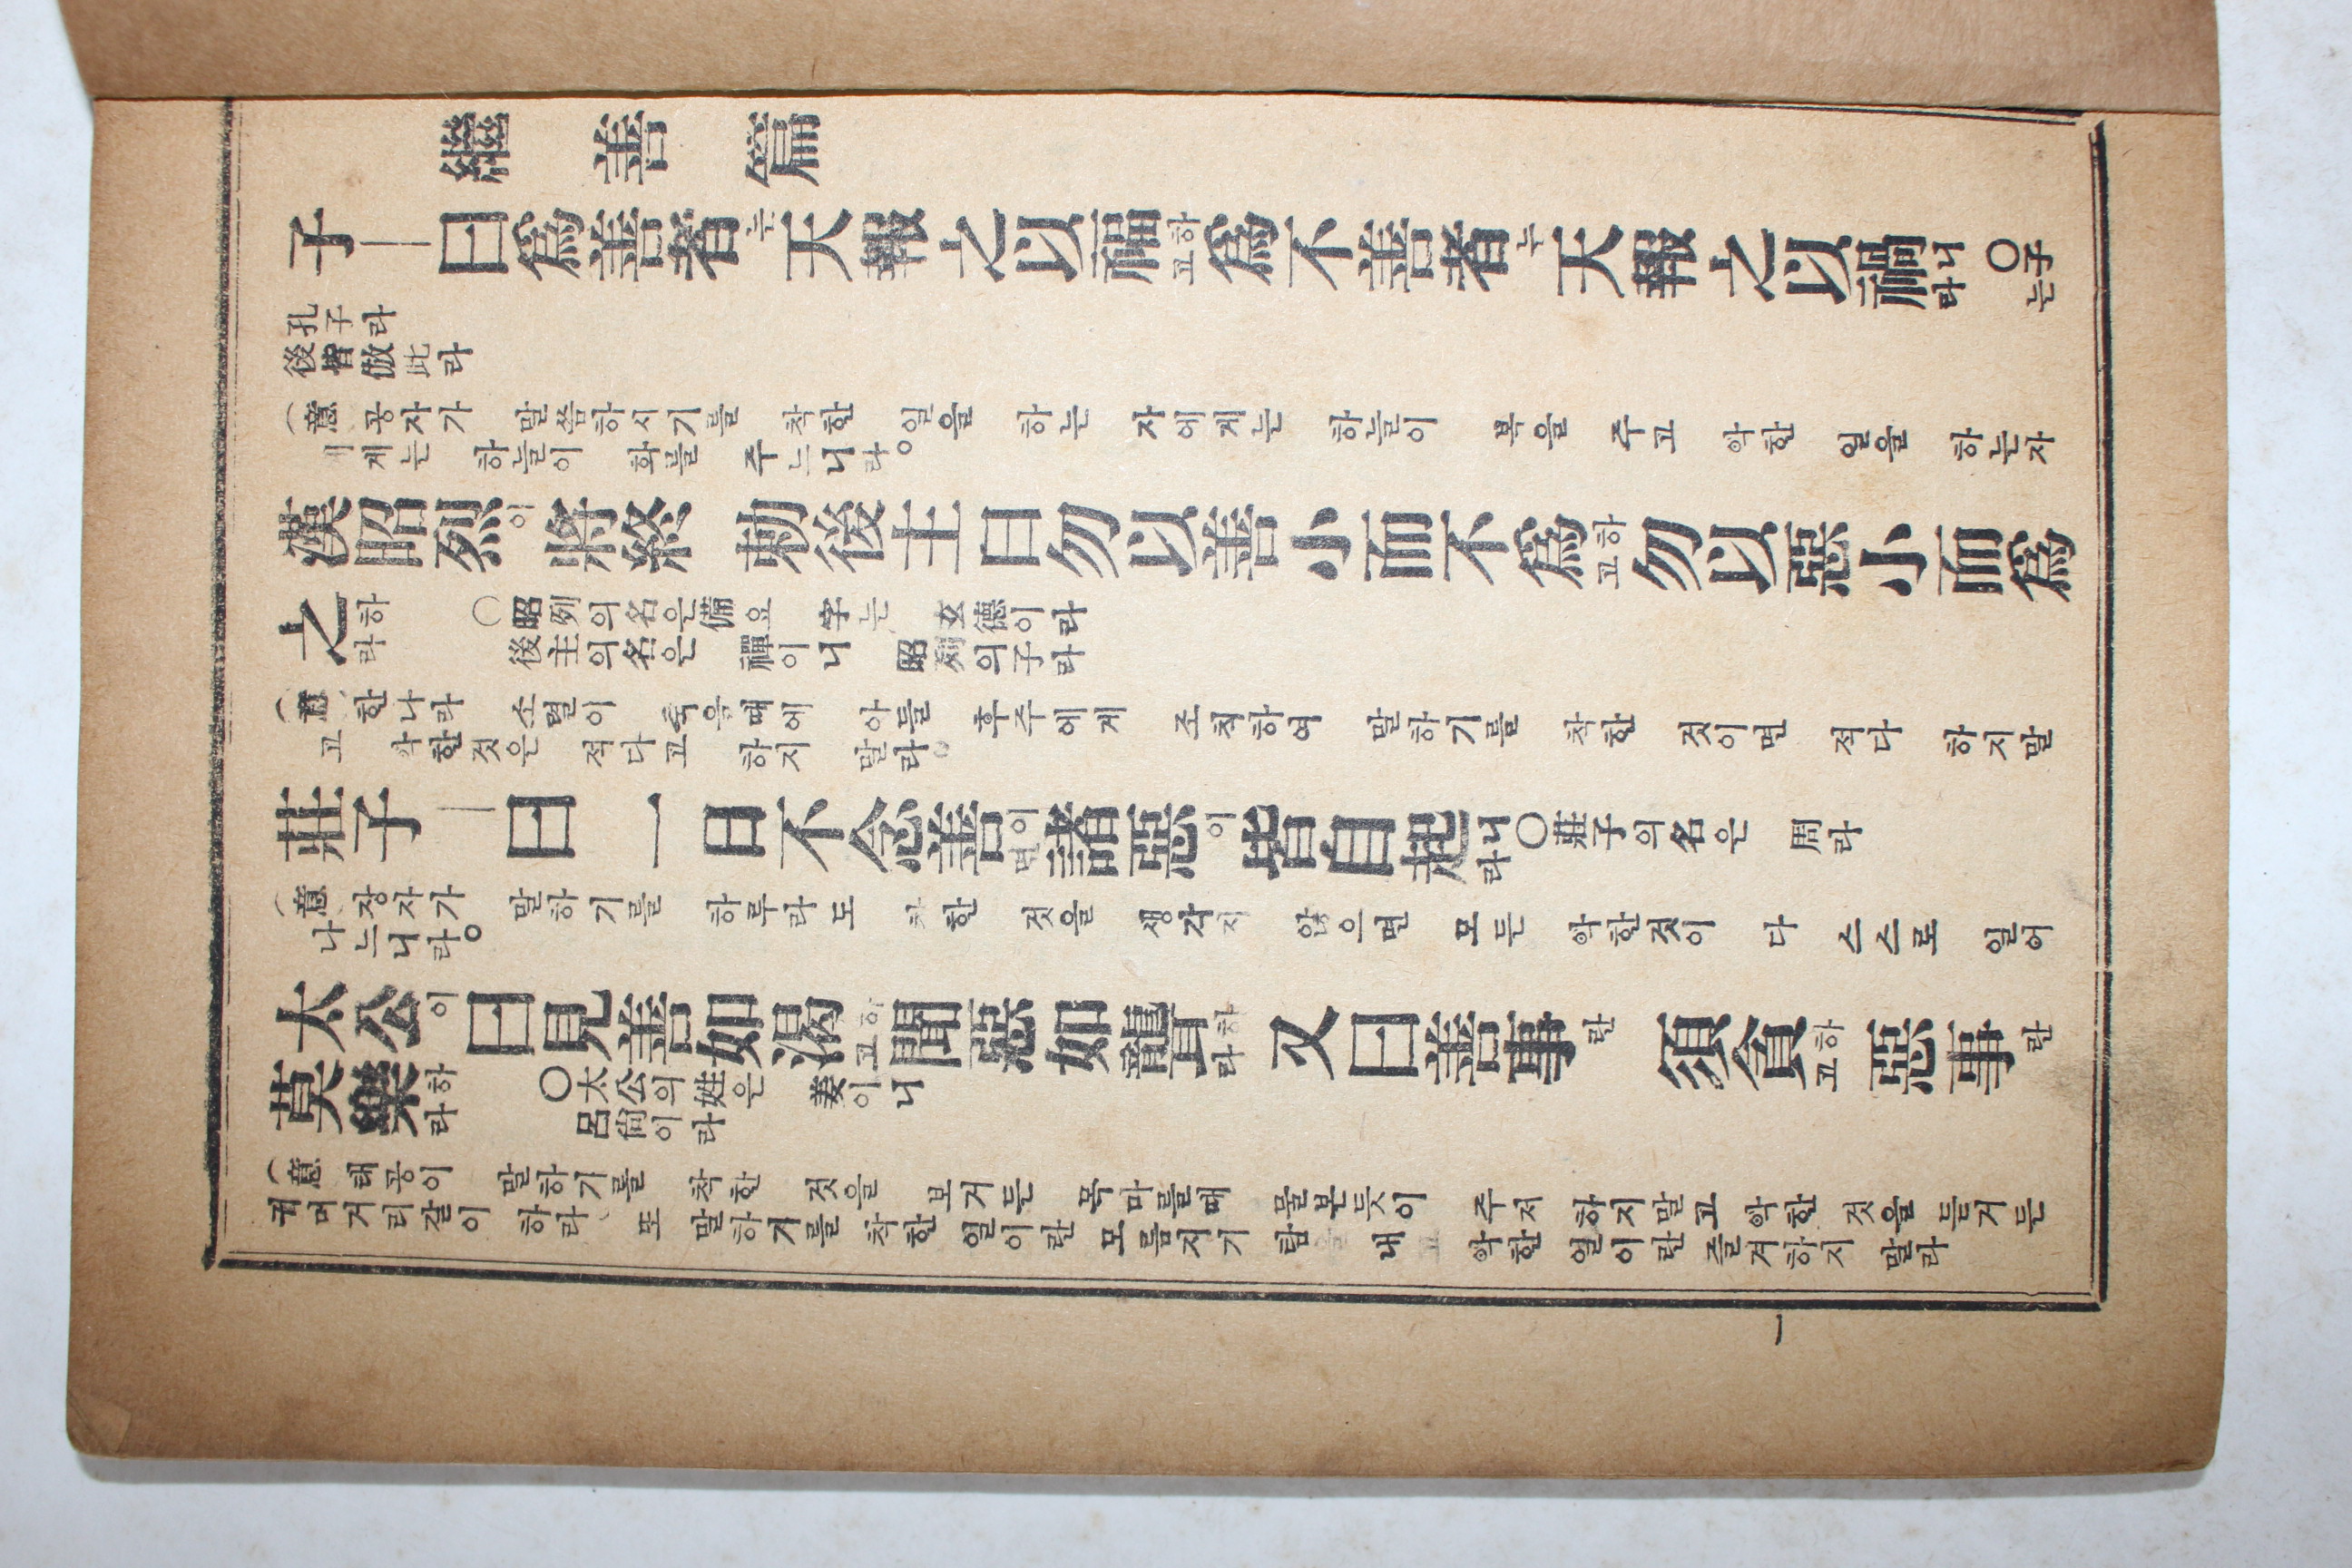 繼善篇
子ㅣ曰爲善者는天報之以福하고爲不善者는天報之以禍니라 ○子는
孔子라
後皆倣此라
(意 공자가 말씀하시기를 착한 일을 하는 자에게는 하늘이 복을 주고 악한 일을 하는자
에게는 하늘이 화를 주느니라。
漢昭烈이將終 勅後主曰勿以善小而不爲하고勿以惡小而爲
之하라 ○昭烈의名은備요 字는 玄德이라
後主의名은 禪이니 昭烈의子라
(意)한나라 소렬이 죽을때에 아들 후주에게 조칙하여 말하기를 착한 것이면 적다 하지말
고 악한것은 적다고 하지 말라。
莊子ㅣ曰 一日不念善이면諸惡이皆自起니라○莊子의名은 周라
(意 장자가 말하기를 하루라도 착한 것을 생각지 않으면 모든 악한것이 다 스스로 일어
나느니라。
太公이曰見善如渴하고聞惡如聾하라 又曰善事란 須貪하고 惡事란
莫樂하라 ○太公의姓은 姜이니
呂尙이라
(意 태공이 말하기를 착한 것을 보거든 목마를때 물본듯이 주저 하지말고 악한 것을 듣거든
귀머거리같이 하라、 또 말하기를 착한 일이란 모름지기 탐을 내고 악한 일이란 즐겨하지 말라
一